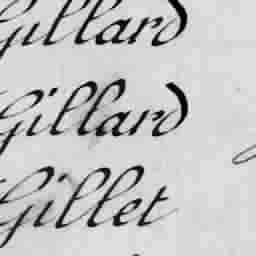 Gillard
Gillard
Gillet